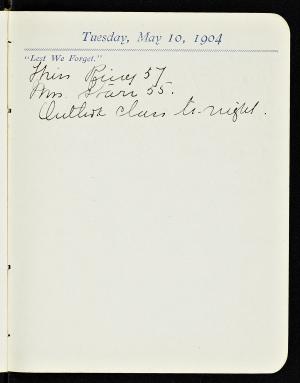 Tuesday, May 10, 1904
"Lest We Forget."
Miss 57
Mrs. Starr 55.
class to-night.